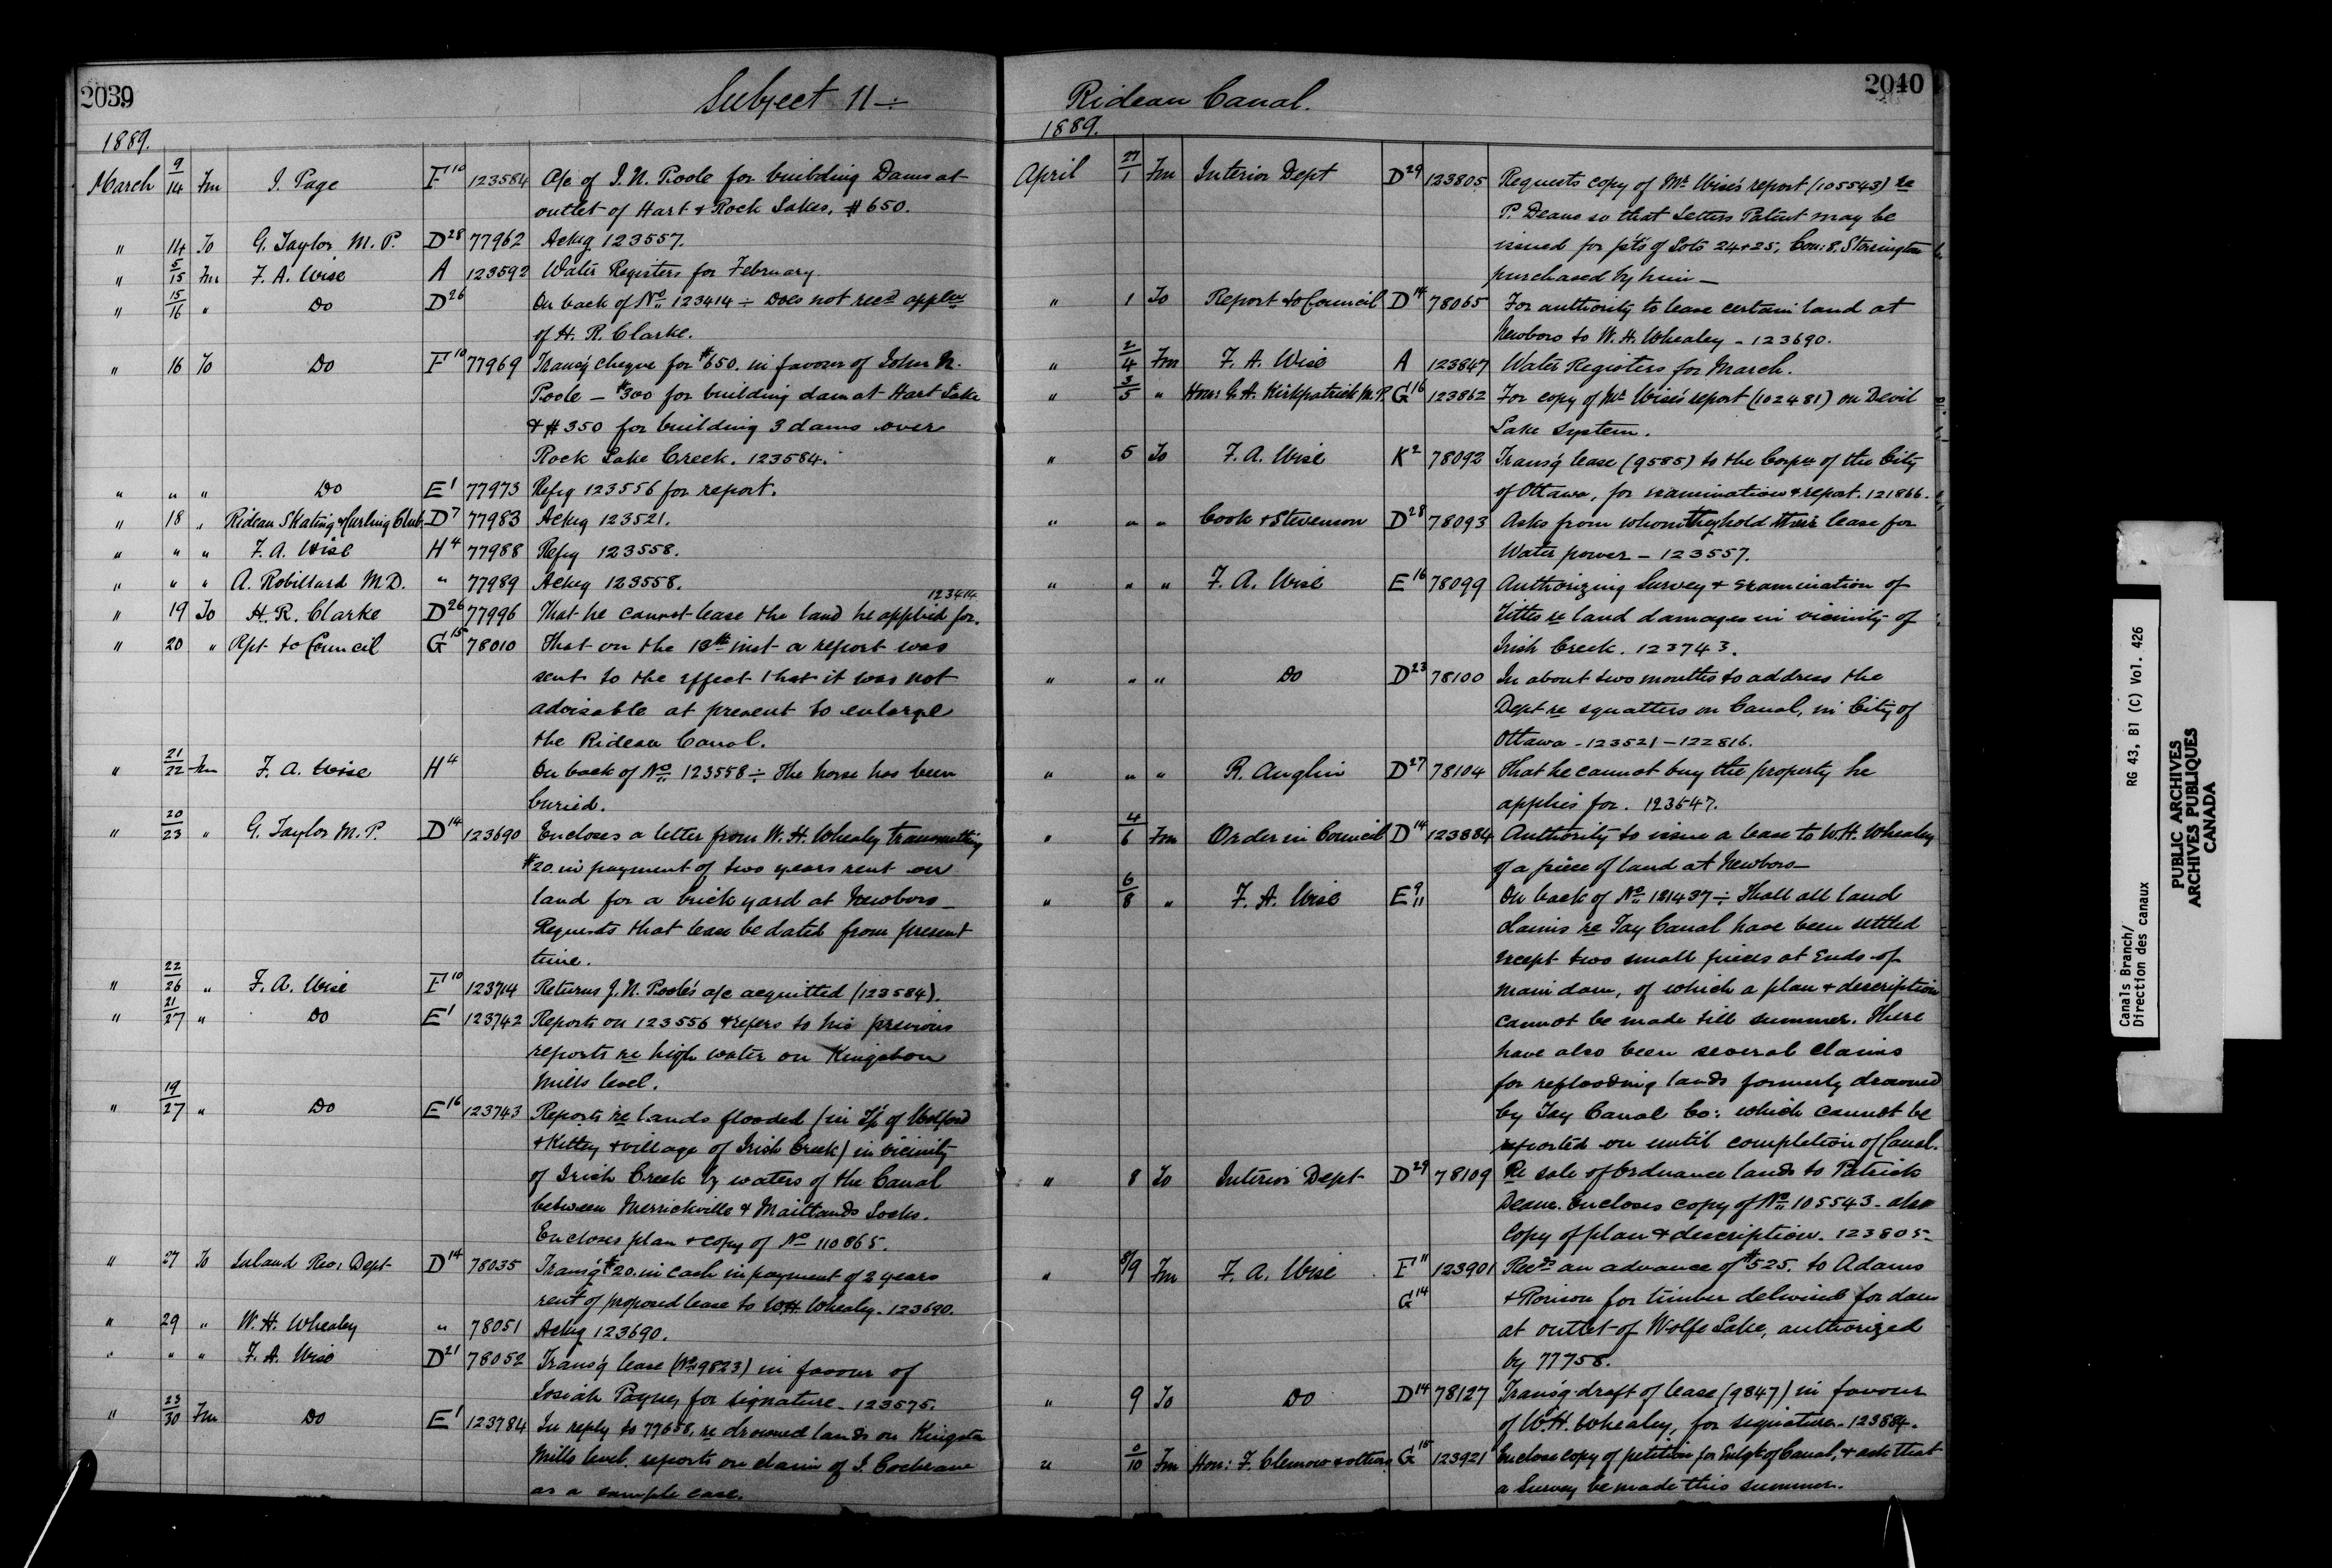 2039
Subject 11 ÷
1889.
March 9/14 Fm J. Page F10 123584 A/c of J. N. Poole for building Dams at
outlet of Hart & Rock Lakes, $650.
" 14 To G. Taylor M. P. D28 77962 Ackg 123557.
" 5/15 Fm F. A. Wise A 123592 Water Registers for February.
" 15/16 " Do D26 On back of No 123414 ÷ Does not recd applcn
of H. R. Clarke.
" 16 To Do F10 77969 Transg cheque for $650. in favour of John N.
Poole — $300 for building dam at Hart Lake
& $350 for building 3 dams over
Rock Lake Creek. 123584.
" " " Do E1 77973 Refg 123556 for report.
" 18 " Rideau Skating & Curling Club D7 77983 Ackg 123521.
" " " F. A. Wise H4 77988 Refg 123558.
" " " A. Robillard M.D. " 77989 Ackg 123558.
123414
" 19 To H. R. Clarke D26 77996 That he cannot lease the land he applied for.
" 20 " Rpt to Council G15 78010 That on the 13th inst a report was
sent to the effect that it was not
advisable at present to enlarge
the Rideau Canal.
" 21/22 Fm F. A. Wise H4 On back of No 123558 ÷ The horse has been
buried.
" 20/23 " G. Taylor M. P. D14 123690 Encloses a letter from W. H. Whealey transmitting
$20. in payment of two years rent on
land for a brick yard at Newboro —
Requests that lease be dated from present
time.
" 22/26 " F. A. Wise F10 123714 Returns J. N. Poole's a/c acquitted (123584).
" 21/27 " Do E1 123742 Reports on 123556 & refers to his previous
reports re high water on Kingston
Mills level.
" 19/27 " Do E16 123743 Reports re lands flooded (in Tp. of Wolford
& Kitley & village of Irish Creek) in vicinity
of Irish Creek by waters of the Canal
between Merrickville & Maitlands Locks.
Encloses plan & copy of No 110865.
" 27 To Inland Rev: Dept D14 78035 Transg $20. in cash in payment of 2 years
rent of proposed lease to W.H. Whealey. 123690.
" 29 " W. H. Whealey " 78051 Ackg 123690.
" " " F. A. Wise D21 78052 Transg lease (No 9823) in favour of
Josiah Payne, for signature. 123575.
" 23/30 Fm Do E1 123784 In reply to 77658, re drowned lands on Kingston
Mills level. reports on claim of J. Cochrane
as a sample case.
2040
Rideau Canal.
1889.
April 27/1 Fm Interior Dept D29 123805 Requests copy of Mr Wise's report (105543) re
P. Deane so that Letters Patent may be
issued for pts of Lots 24 & 25, Con: 8, Storrington
purchased by him —
" 1 To Report to Council D14 78065 For authority to lease certain land at
Newboro to W. H. Whealey - 123690.
" 2/4 Fm F. A. Wise A 123847 Water Registers for March.
" 3/5 " Hon: G. A. Kirkpatrick M.P. G16 123862 For copy of Mr Wise's report (102481) on Devil
Lake System.
" 5 To F. A. Wise K2 78092 Transg lease (9585) to the Corpn of the City
of Ottawa, for examination & report. 121866.
" " " Cook & Stevenson D28 78093 Asks from whom they hold their lease for
Water power — 123557.
" " " F. A. Wise E16 78099 Authorizing Survey & examination of
titles re land damages in vicinity of
Irish Creek. 123743.
" " " Do D23 78100 In about two months to address the
Dept re squatters on Canal, in City of
Ottawa - 123521 - 122816.
" " " R. Anglin D27 78104 That he cannot buy the property he
applies for. 123547.
" 4/6 Fm Order in Council D14 123884 Authority to issue a lease to W.H. Whealey
of a piece of land at Newboro —
" 6/8 " F. A. Wise E 9/11 On back of No 121437 ÷ That all land
claims re Tay Canal have been settled
except two small pieces at Ends of
main dam, of which a plan & description
cannot be made till summer. There
have also been several claims
for reflooding lands formerly drowned
by Tay Canal Co: which cannot be
reported on until completion of Canal.
" 8 To Interior Dept D29 78109 Re sale of Ordnance lands to Patrick
Deane. Encloses copy of No 105543 - also
Copy of plan & description. 123805.
" 8/9 Fm F. A. Wise F11 G14 123901 Recds an advance of $525. to Adams
& Rorison for timber delivered for dam
at outlet of Wolfe Lake, authorized
by 77758.
" 9 To Do D14 78127 Transg draft of lease (9847) in favour
of W.H. Whealey, for signature. 123884.
" 10 Fm Hon: F. Clemow & others G15 123921 Enclose copy of petition for Enlgt of Canal, & ask that
a Survey be made this summer.
Canals Branch/ RG 43, B1 (C) Vol. 426
Direction des canaux
PUBLIC ARCHIVES
ARCHIVES PUBLIQUES
CANADA